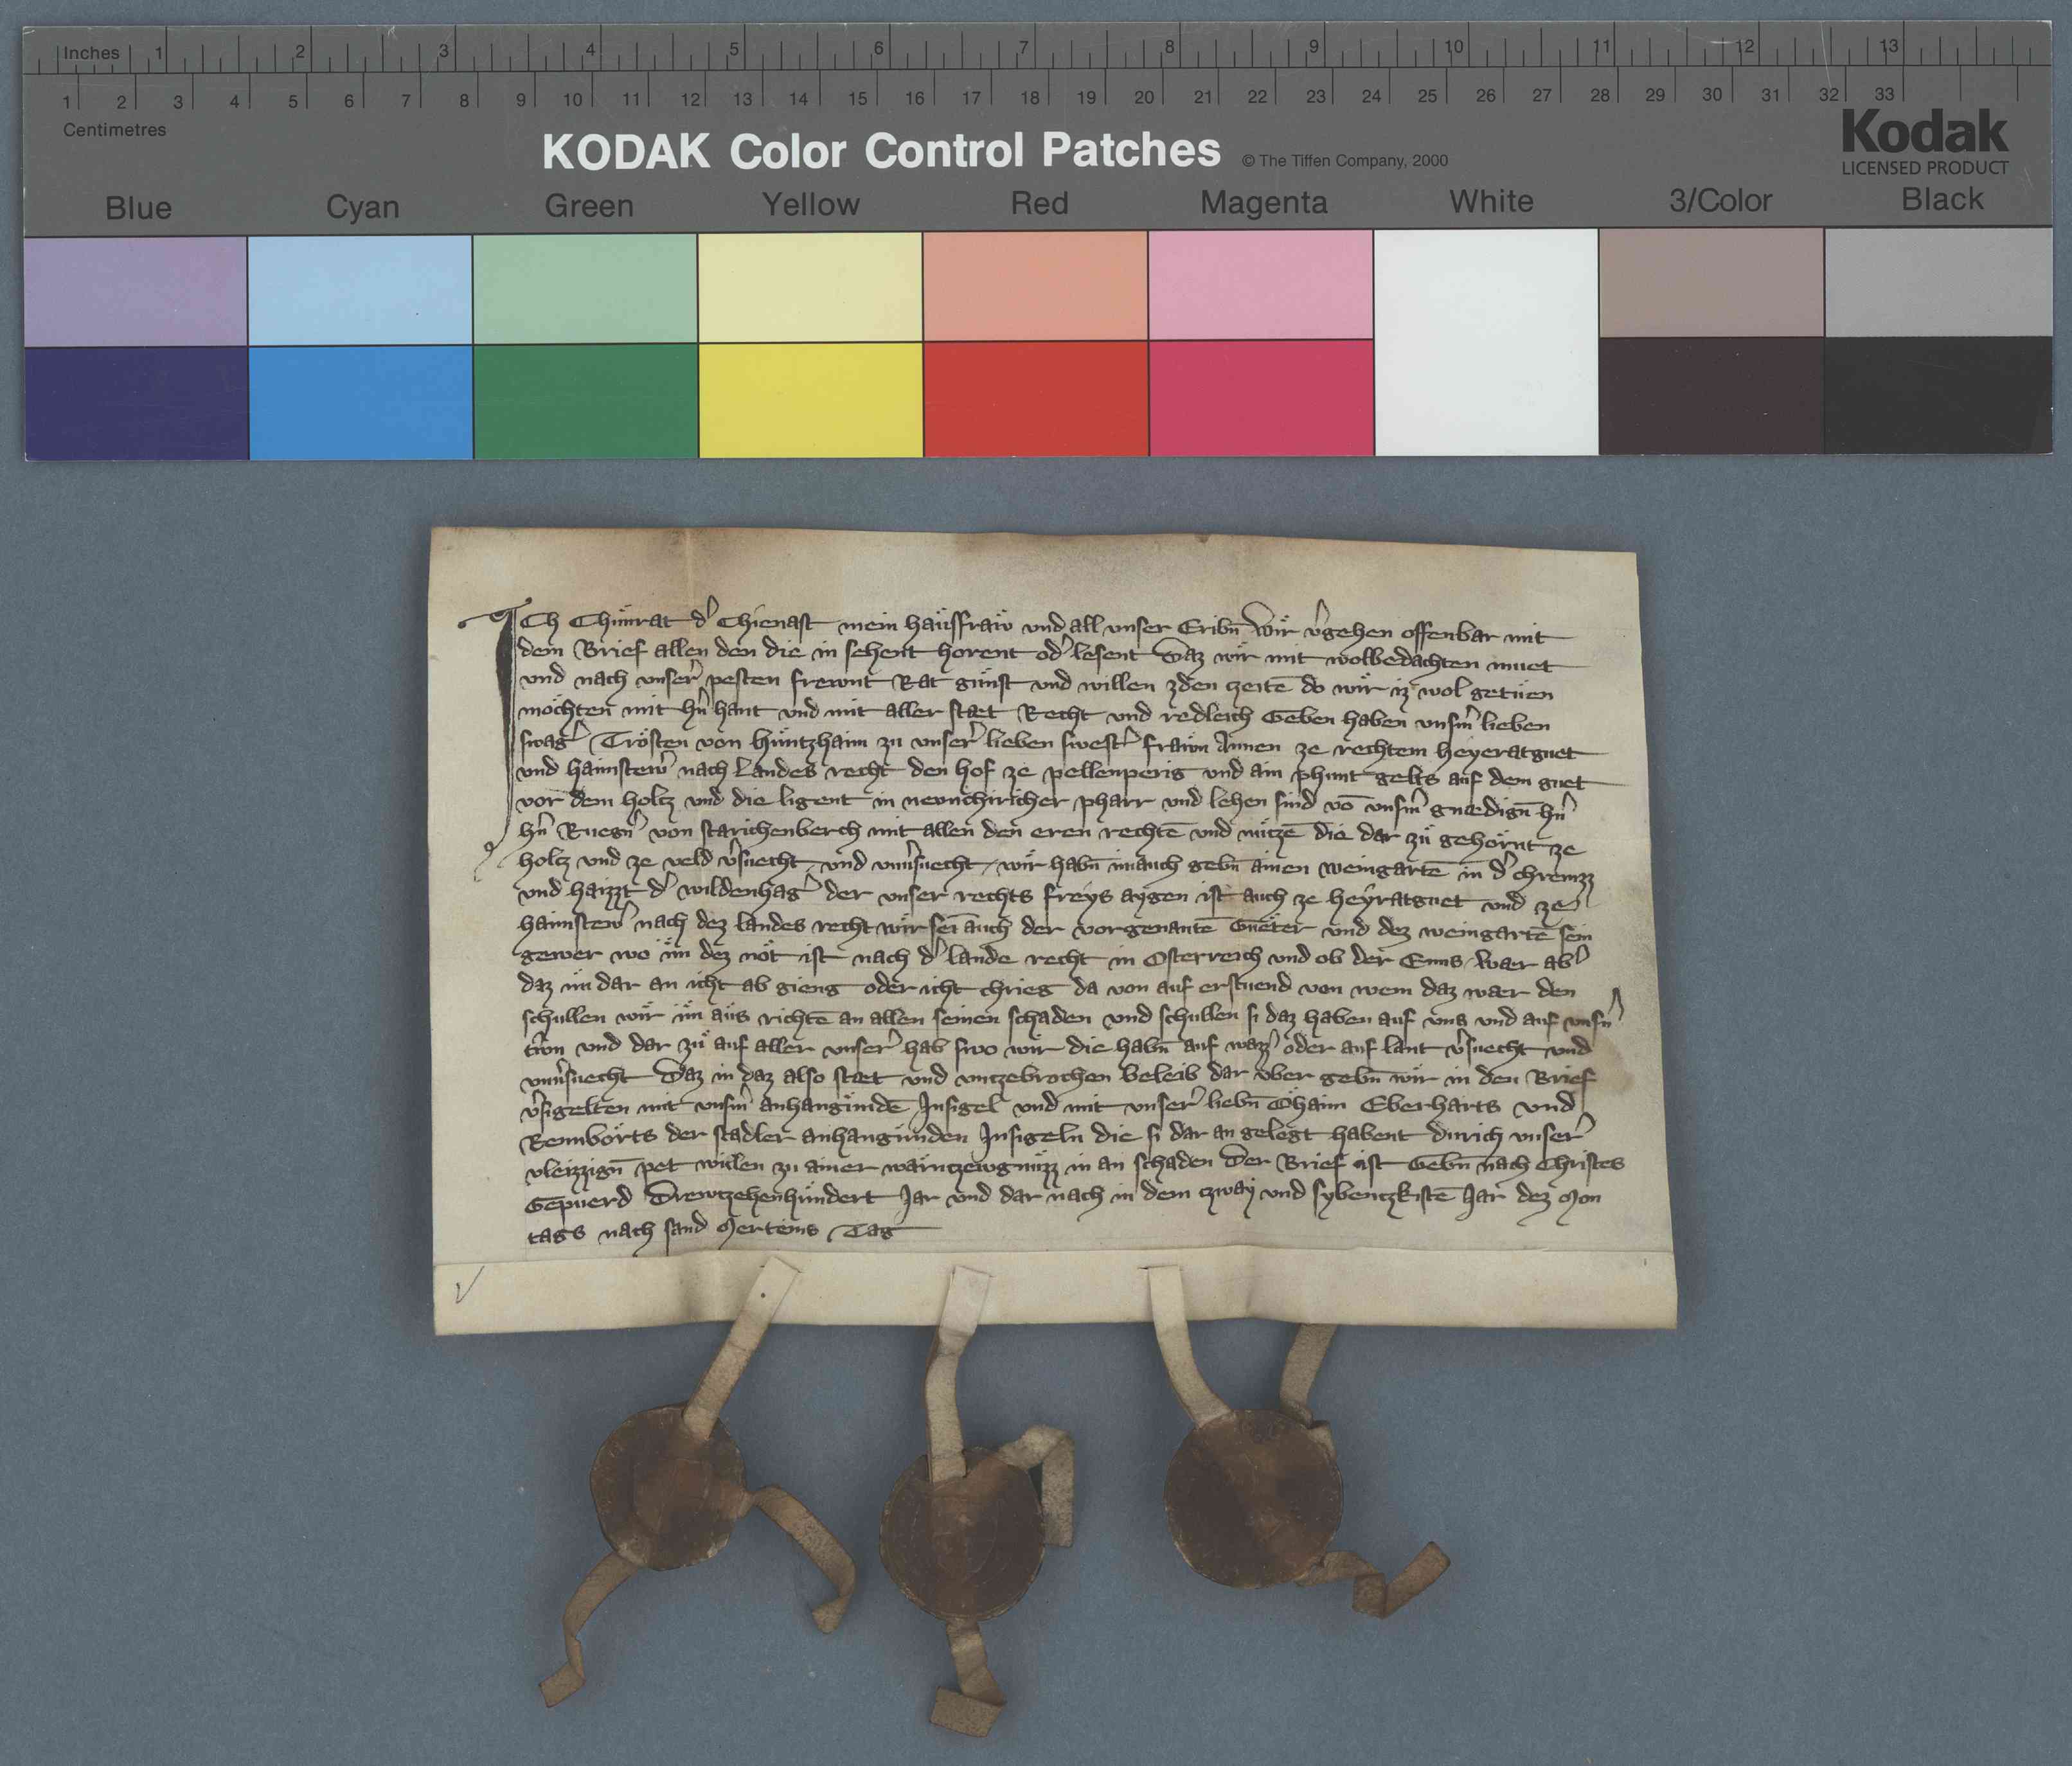 Inches 1 2 3 4 5 6 7 8 9 10 11 12 13
1 2 3 4 5 6 7 8 9 10 11 12 13 14 15 16 17 18 19 20 21 22 23 24 25 26 27 28 29 30 31 32 33
Centimetres
KODAK Color Control Patches © The Tiffen Company, 2000
Kodak
LICENSED PRODUCT
Blue Cyan Green Yellow Red Magenta White 3/Color Black
ICh Chunrat d' Chienast mein hausfraw und all unser Eribn̄ Wir v'gehen offenbar mit
dem Brief allen den die in sehent horent od' lesent Daz wir mit wolbedachten muet
und nach unser' pesten frewnt Rat gunst und willen zden zeitē do wir iz wol getuen
mochten mit hn̄ hant und mit aller stæt Recht und redleich Geben haben unsm̄ lieben
swag' Trosten von Huntzhaim zu unser' lieben swest' frawn Annen ze rechtem heyeratguet
und haimstew' nach Landes recht den hof ze pellenperig und ain phunt gelts auf dem guet
vor dem holtz und die ligent in newnchiricher pharr und lehen sind vō unsm̄ gnædign̄ hn̄
hn̄ Ruegn̄ von starichenberch mit allen den eren rechtē und nutzē die dar zu gehornt ze
holtz und ze veld v'suecht und unv'suecht wir habn̄ im auch gebn̄ ainen weingartē in d' chremzz
und haizzt d' wildenhag' der unser rechts freys aygen ist auch ze heyratguet und ze
haimstew' nach dez landes recht wir sei auch der vorgenantē Gueter und dez weingartē sein
gewer wo im dez not ist nach d' lande recht in Osterreich und ob der Enns Waer ab'
daz im dar an icht ab gieng oder icht chrieg da von auf erstuend von wem daz waer den
schullen wir im aus richtē an allen seinen schaden und schullen si daz haben auf uns und auf unsn̄
trwn und dar zu auf aller unser' hab swo wir die habn̄ auf wazz' oder auf lant v'suecht und
unv'suecht Daz in daz also stæt und unzebrochen beleib dar uber gebn̄ wir in den Brief
v'sigelten mit unsm̄ anhangundē Insigel und mit unser' liebn̄ Ohaim Eberharts und
Remborts der stadler anhangunden Insigeln die si dar an gelegt habent durich unser'
vleizzign̄ pet willen zu ainer warntzewgnuzz in an schaden Der Brief ist Gebn̄ nach Christes
Gepuerd Drewtzehenhundert Jar und dar nach in dem tzway und sybentzkistē Jar dez Mon
tags nach sand Merteins Tag